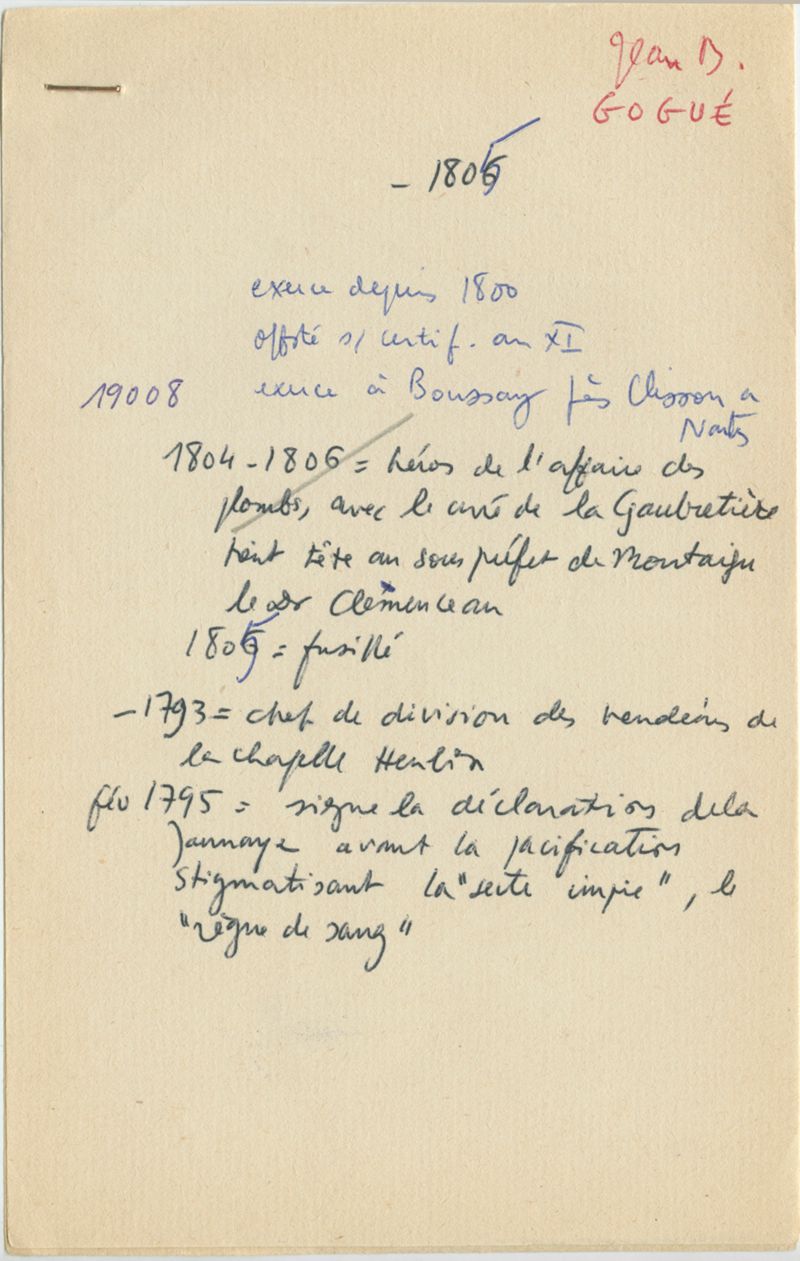 Jean B.
GOGUÉ
- 1805
exerce depuis 1800
s/ certif. an XI
19008 exerce à Boussay près Clisson à
Nantes
1804-1806 = héros de l'affaire des
plombs, avec le curé de la Gaubretière
tient tête au sous préfet de Montaigu
le Dr Clémenceau
1805 = fusillé
- 1793 = chef de division des vendéens de
la chapelle Heulin
fév 1795 = signe la déclaration de la
Jaunaye avant la pacification
stigmatisant la "secte impie", le
"règne de sang"